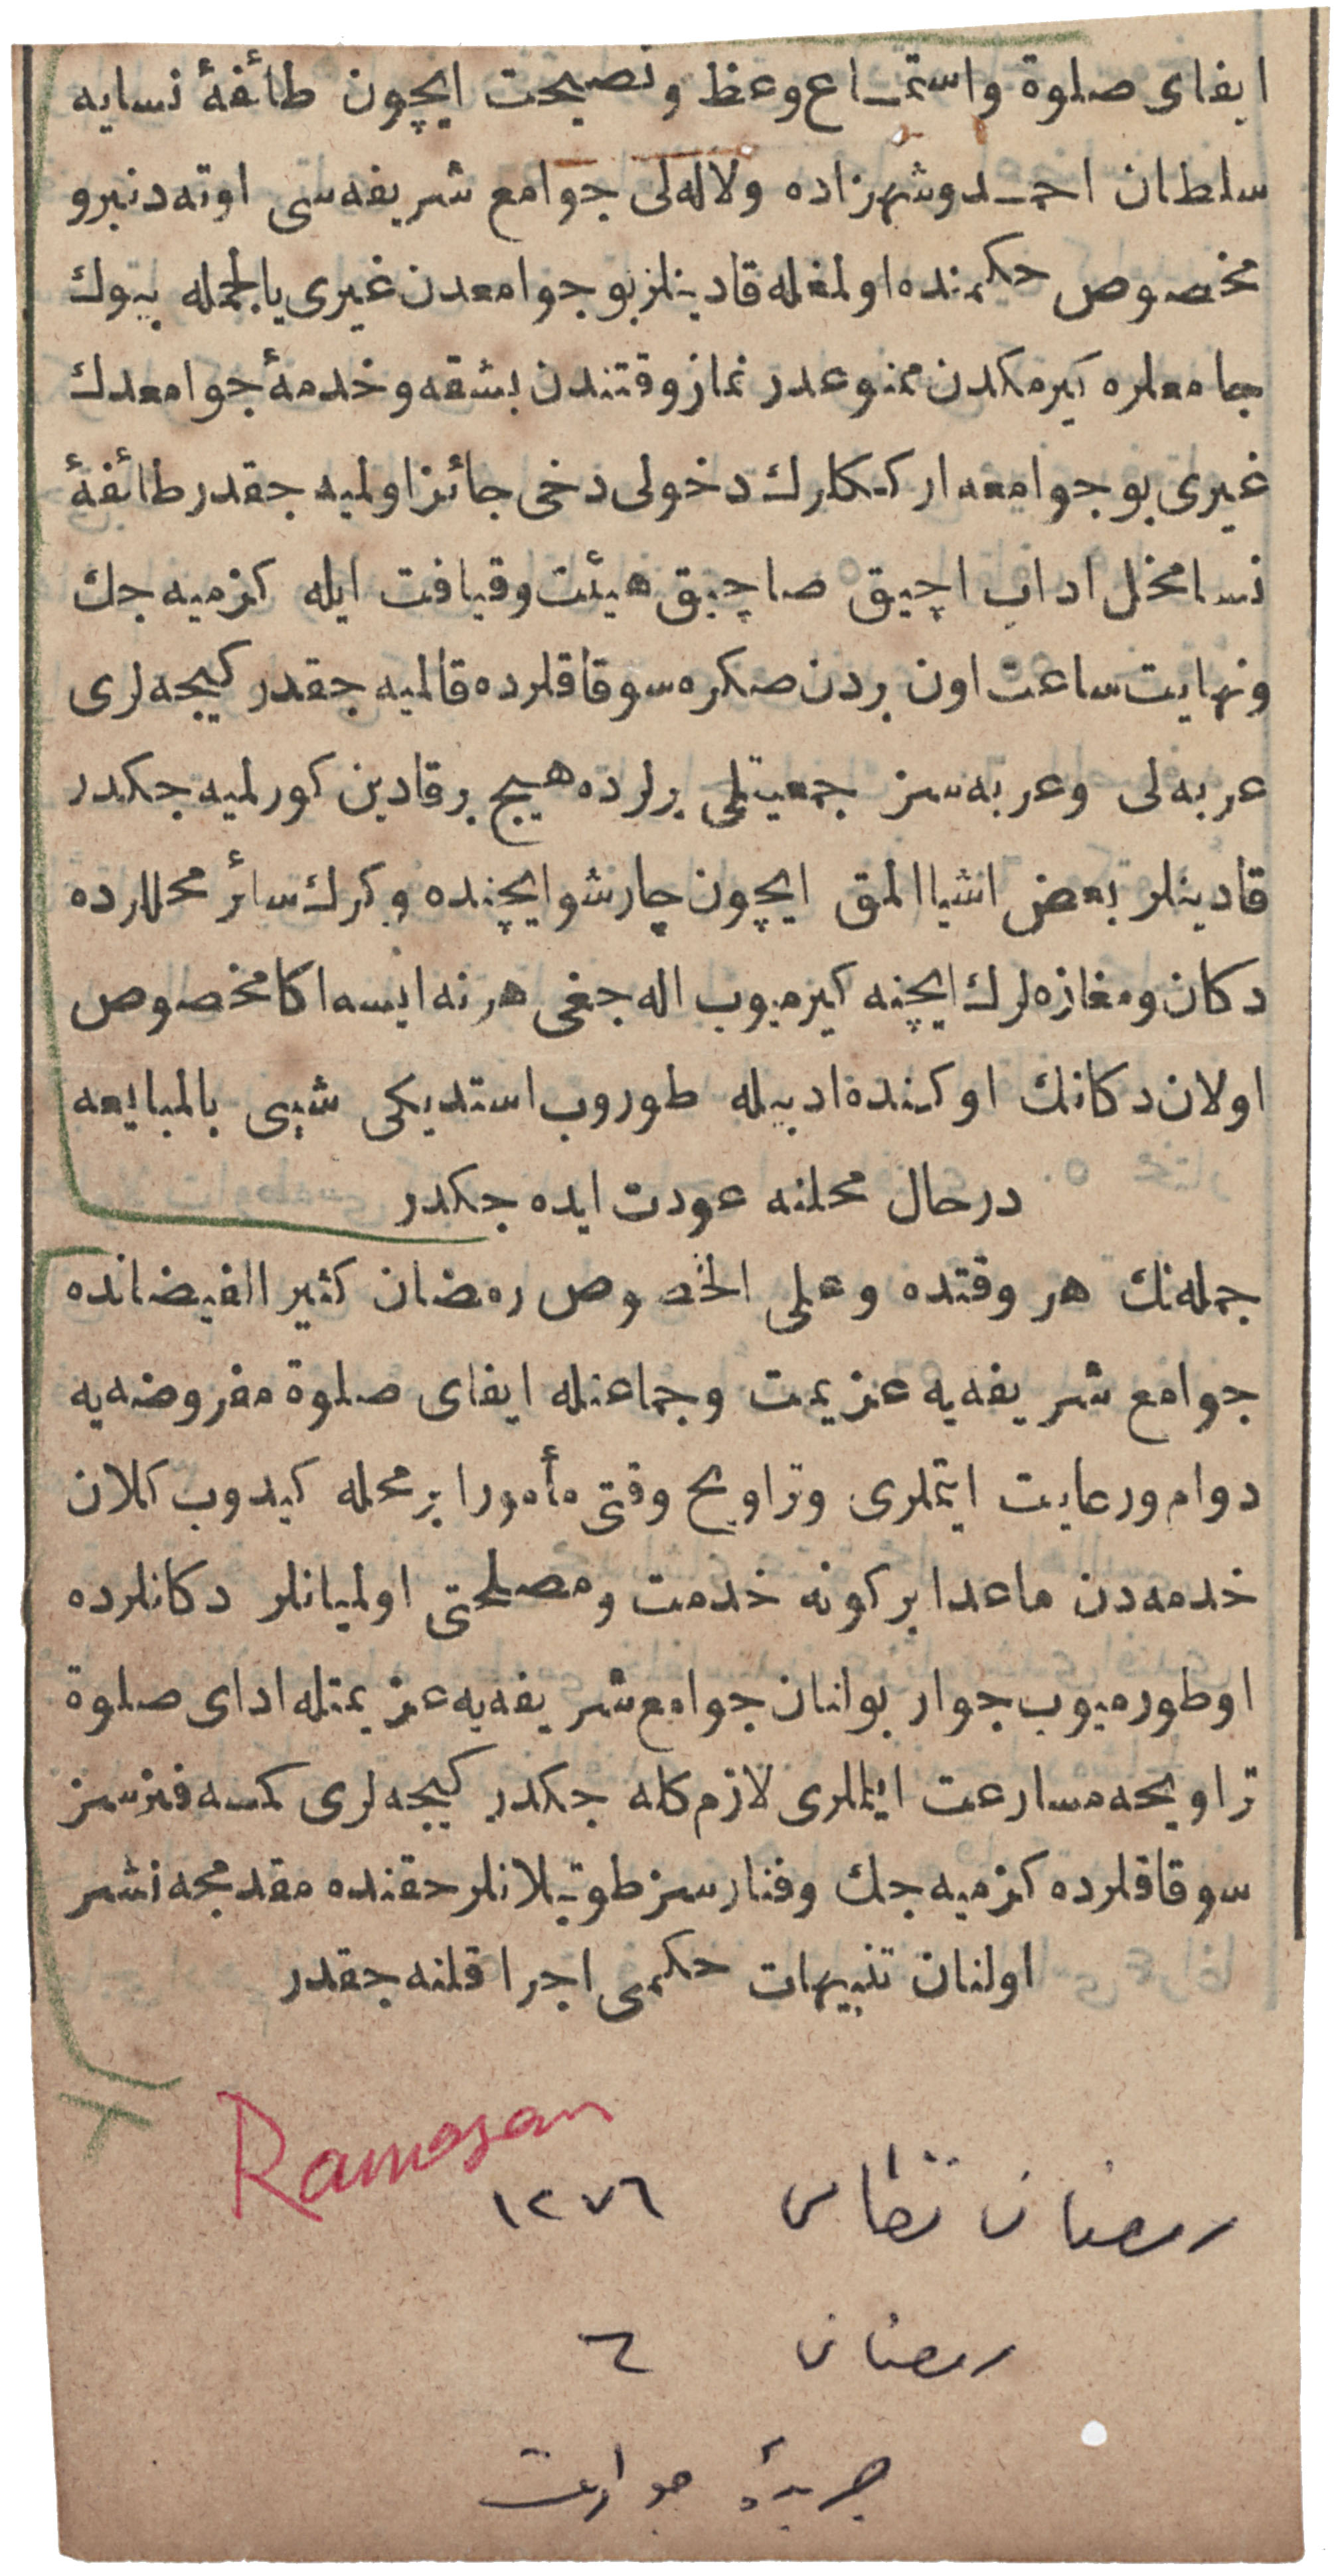 ايفاى صلوة واستمـاع وعظ ونصيحت ايچون طائفهٔ نسايه
سلطان احمـد وشهزاده ولاله‌لى جوامع شريفه‌سى اوته‌دنبرو
مخصوص حكمنده اولمغله قادينلر بو جوامعدن غيرى بالجمله بيوك
جامعلره كيرمكدن ممنوعدر نماز وقتندن بشقه وخدمهٔ جوامعدك
غيرى بو جوامعه اركـكلرك دخولى دخى جائز اولميه جقدر طائفهٔ
نسا مخل اداب اچيق صاچيق هيئت وقيافت ايله كزميه جك
ونهايت ساعت اون بردن صكره سوقاقلرده قالميه جقدر كيجه‌لرى
عربه‌لى وعربه‌سز جمعيتلى يرلرده هيچ بر قادين كورلميه جكدر
قادينلر بعض اشيا المق ايچون چارشو ايچنده وكرك سائر محللرده
دكان ومغازه‌لرك ايچنه كيرميوب اله جغى هر نه ايسه اكا مخصوص
اولان دكانك اوكنده ادبيله طوروب استديكى شيى بالمبايعه
درحال محلنه عودت ايده جكدر
جمله‌نك هر وقتده وعلى الخصوص رمضان كثير الفيضانده
جوامع شريفه‌يه عزيمت وجماعتله ايفاى صلوة مفروضه‌يه
دوام ورعايت ايتملرى وتراويح وقتى مأمورا بر محله كيدوب كلان
خدمه‌دن ماعدا بر كونه خدمت ومصلحتى اولميانلر دكانلرده
اوطورميوب جوار بولنان جوامع شريفه‌يه عزيمتله اداى صلوة
تراويحه مسارعت ايتملرى لازم كله جكدر كيجه‌لرى كمسه فنرسز
سوقاقلرده كزميه جك وفنارسز طوتيلانلر حقنده مقدمجه نشر
اولنان تنبيهات حكمى اجرا قلنه جقدر
Ramazan
رمضان ١٢٧٦
رمضان ٦
جريدهٔ حوادث